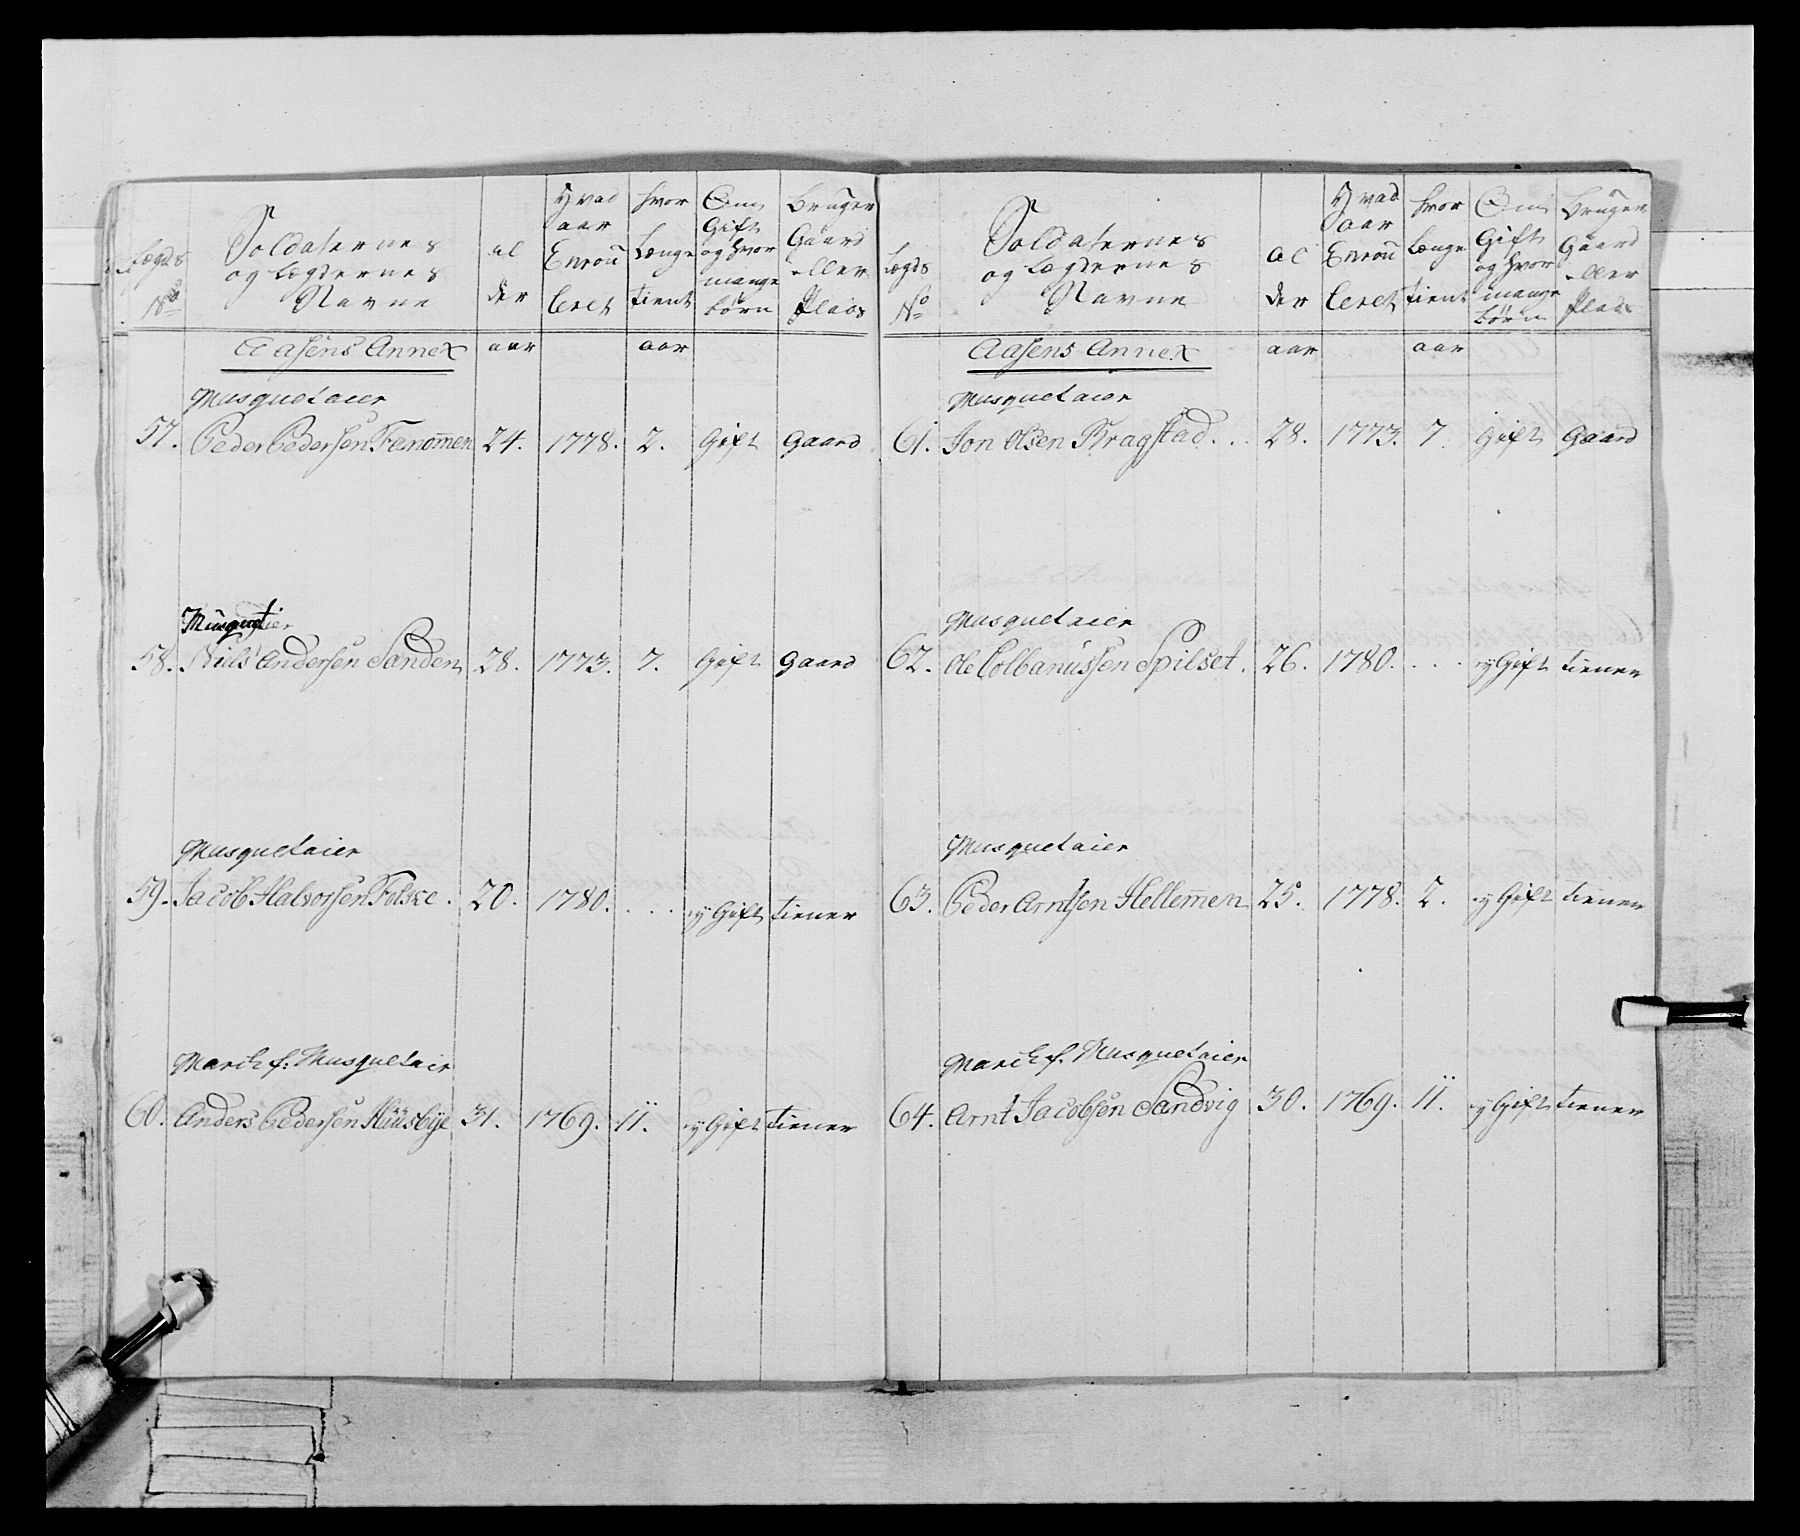 Lægds No | Soldaternes og Lægdernes Navne | Al der | Hvad aar Enroulleret | Hvor Længe tient | Om Gift og hvor mange børn | Bruger Gaard eller Plads
Aasens Annex | aar | | aar
Musquetaier
57. Peder Pedersen Fenommen | 24. | 1778. | 2. | Gift | Gaard
Musquet
58. Niels Andersen Sanden | 28. | 1773. | 7. | Gift | Gaard
Musquetaier
59. Jacob Halvorsen Folske . | 20. | 1780. | . . . | ey Gift | tiener
March f: Musquetair
60. Anders Pedersen Huusbye | 31. | 1769. | 11. | ey Gift | tiener
Lægds No | Soldaternes og Lægdernes Navne | Al der | Hvad aar Enroulleret | Hvor Længe tient | Om Gift og hvor mange børn | Bruger Gaard eller Plads
Aasens Annex | aar | | aar
Musquetaier
61. Jon Olsen Kragstad . . | 28. | 1773. | 7. | Gift | Gaard
Musquetaier
62. Ole Colbanussen Spilset . | 26. | 1780. | . . . | ey Gift | tiener
Musquetaier
63. Peder Arntsen Hellemen | 25. | 1778. | 2. | ey Gift | tiener
March f. Musquetaier
64. Arnt Jacobsen Sandvig | 30. | 1769. | 11. | ey Gift | tiener